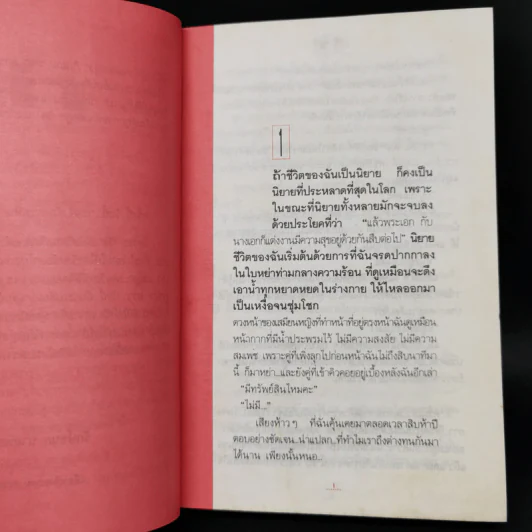 1
ถ้าชีวิตของฉันเป็นนิยาย ก็คงเป็น
นิยายที่ประหลาดที่สุดในโลก เพราะ
ในขณะที่นิยายทั้งหลายมักจะจบลง
ด้วยประโยคที่ว่า "แล้วพระเอก กับ
นางเอกก็แต่งงานมีความสุขอยู่ด้วยกันสืบต่อไป" นิยาย
ชีวิตของฉันเริ่มต้นด้วยการที่ฉันจรดปากกาลง
ในใบหย่าท่ามกลางความร้อน ที่ดูเหมือนจะดึง
เอาน้ำทุกหยาดหยดในร่างกาย ให้ไหลออกมา
เป็นเหงื่อจนชุ่มโชก
ดวงหน้าของเสมียนหญิงที่ทำหน้าที่อยู่ตรงหน้าฉันดูเหมือน
หน้ากากที่มีน้ำประพรมไว้ ไม่มีความสงสัย ไม่มีความ
สมเพช เพราะคู่ที่เพิ่งลุกไปก่อนหน้าฉันไม่ถึงสิบนาทีมา
นี้ ก็มาหย่า...และยังคู่ที่เข้าคิวคอยอยู่เบื้องหลังฉันอีกเล่า
"มีทรัพย์สินไหมคะ"
"ไม่มี..."
เสียงห้าวๆ ที่ฉันคุ้นเคยมาตลอดเวลาสิบห้าปี
ตอบอย่างชัดเจน..น่าแปลก..ที่ทำไมเราถึงต่างทนกันมา
ได้นาน เพียงนั้นหนอ..
1